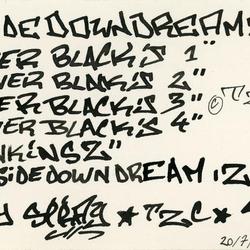 IDEDOWNDREAM!
ER BLACK'S 1"
VER BLACK'S 2"
ER BLACK'S 3" © "T
VER BLACK'S 4"
NKINSZ"
SIDEDOWNDREAM:Z
* TZC *
20/7/